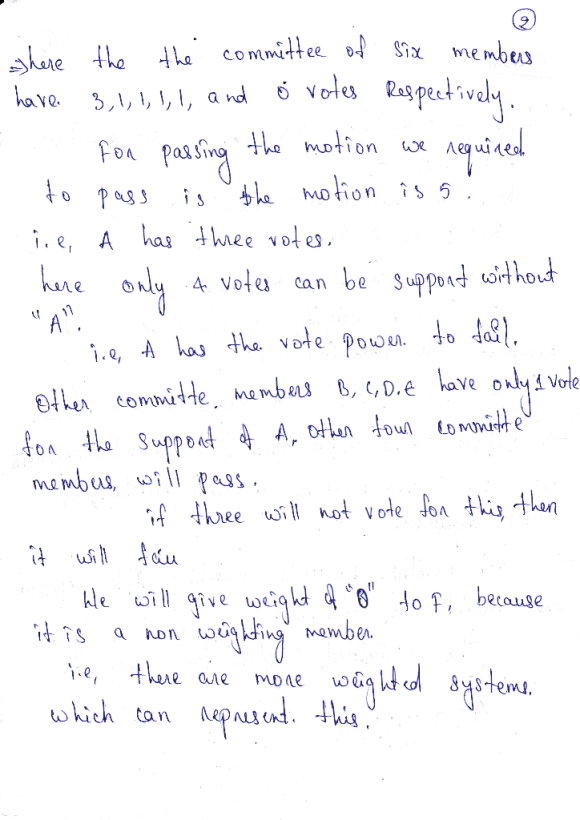 2
⇒here the the committee of six members
have 3,1,1,1,1, and 0 votes Respectively.
For passing the motion we required
to pass is the motion is 5.
i.e, A has three votes.
here only 4 votes can be support without
"A".
i.e, A has the vote power to fail.
Other committe members B, C, D, E have only 1 vote
for the support of A, other four committe
members, will pass.
if three will not vote for this, then
it will fail
We will give weight of "0" to F, because
it is a non weighting member.
i.e, there are more weighted systems.
which can represent. this.